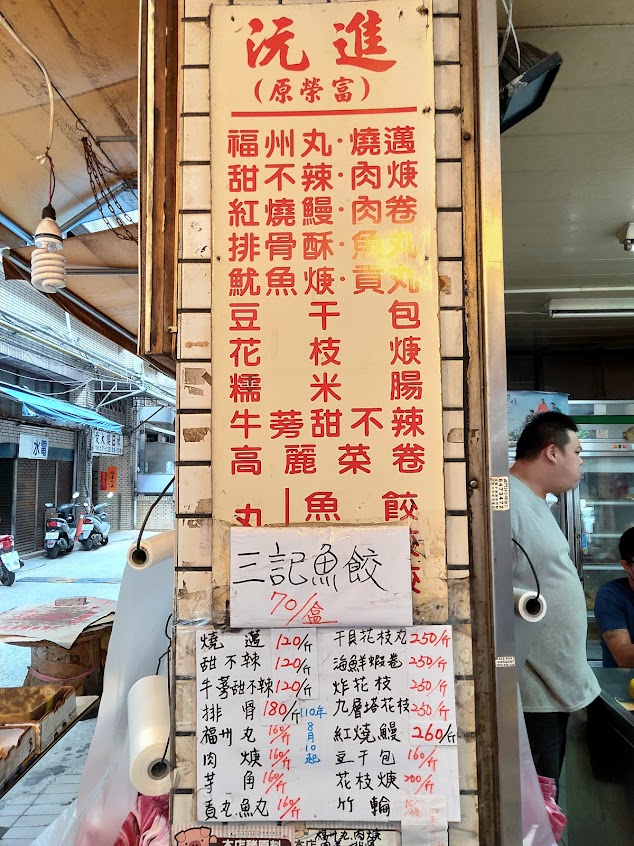 沅進
(原榮富)
福州丸·燒邁
甜不辣·肉焿
紅燒鰻·肉卷
排骨酥·魚丸
魷魚焿·貢丸
豆干包
花枝焿
糯米腸
牛蒡甜不辣
高麗菜卷
丸 魚餃
三記魚餃
70/盒
燒邁 120/斤
甜不辣 120/斤
牛蒡甜不辣 120/斤
排骨 180/斤
福州丸 160/斤
肉焿 160/斤
芋角 160/斤
貢丸.魚丸 160/斤
110年
8月
10
起
干貝花枝丸 250/斤
海鮮蝦卷 250/斤
炸花枝 250/斤
九層塔花枝 250/斤
紅燒鰻 260/斤
豆干包 160/斤
花枝焿 200/斤
竹輪
福州丸.肉焿
水電